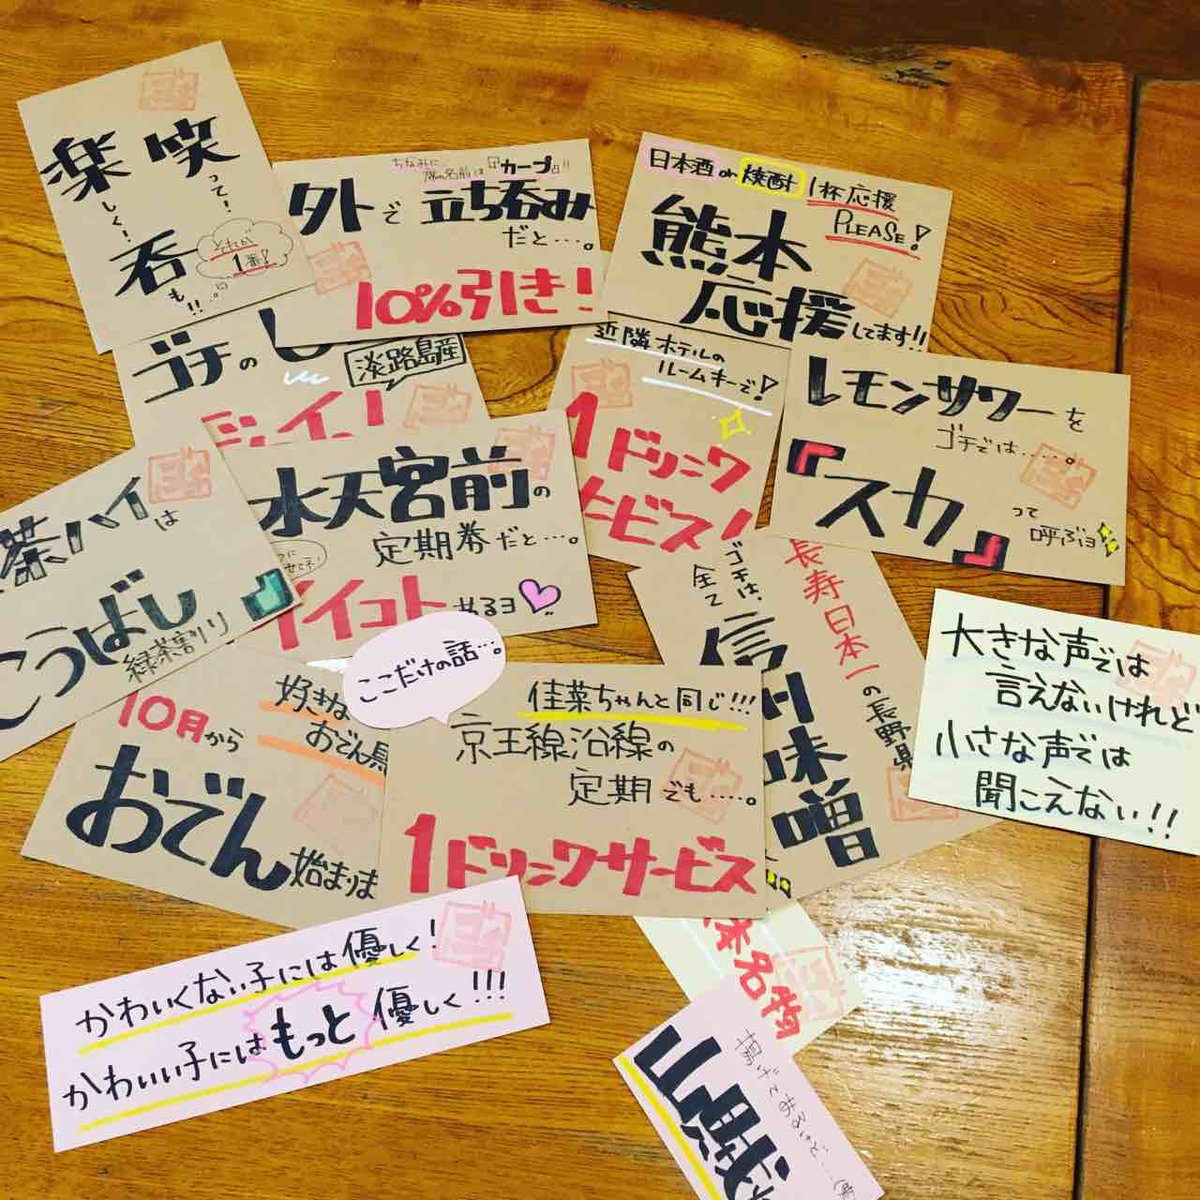 楽しく!
笑って!
呑も!!
それが
1番!
ちなみに
席の名前は カープ
外で立ち呑み
だと…。
10%引き!
日本酒or焼酎1杯応援
PLEASE!
熊本
応援してます!!
ゴチの
淡路島産
近隣ホテルの
ルームキーで!
1ドリンク
サービス!
レモンサワーを
ゴチでは……。
『スカ』って
呼ぶヨ
茶ハイは
こうばし
緑茶割り
水天宮前の
定期券だと…。
イイコト せるヨ
ゴチは、
全て
信州味噌
長寿日本一の長野県
大きな声では
言えないけれど
小さな声では
聞こえない!!
10月から
おでん始まりま
好きな
おでん
ここだけの話…。
佳菜ちゃんと同じ!!!
京王線沿線の
定期でも……。
1ドリンクサービス
かわいくない子には優しく!
かわいい子にはもっと優しく!!!
名物
山賊
揚げてあるけど…